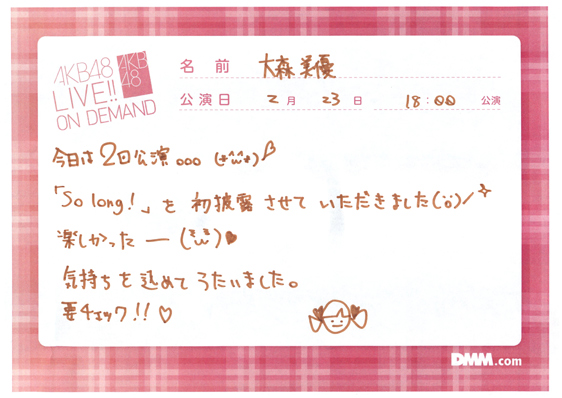 AKB48
LIVE!!
ON DEMAND
AKB
48
名 前 大森美優
公演日 2月 23日 18:00 公演
今日は2回公演。。。
「So long!」を 初披露 させて いただきました
楽しかったー
気持ちを込めてうたいました。
要チェック!!♡
DMM.com